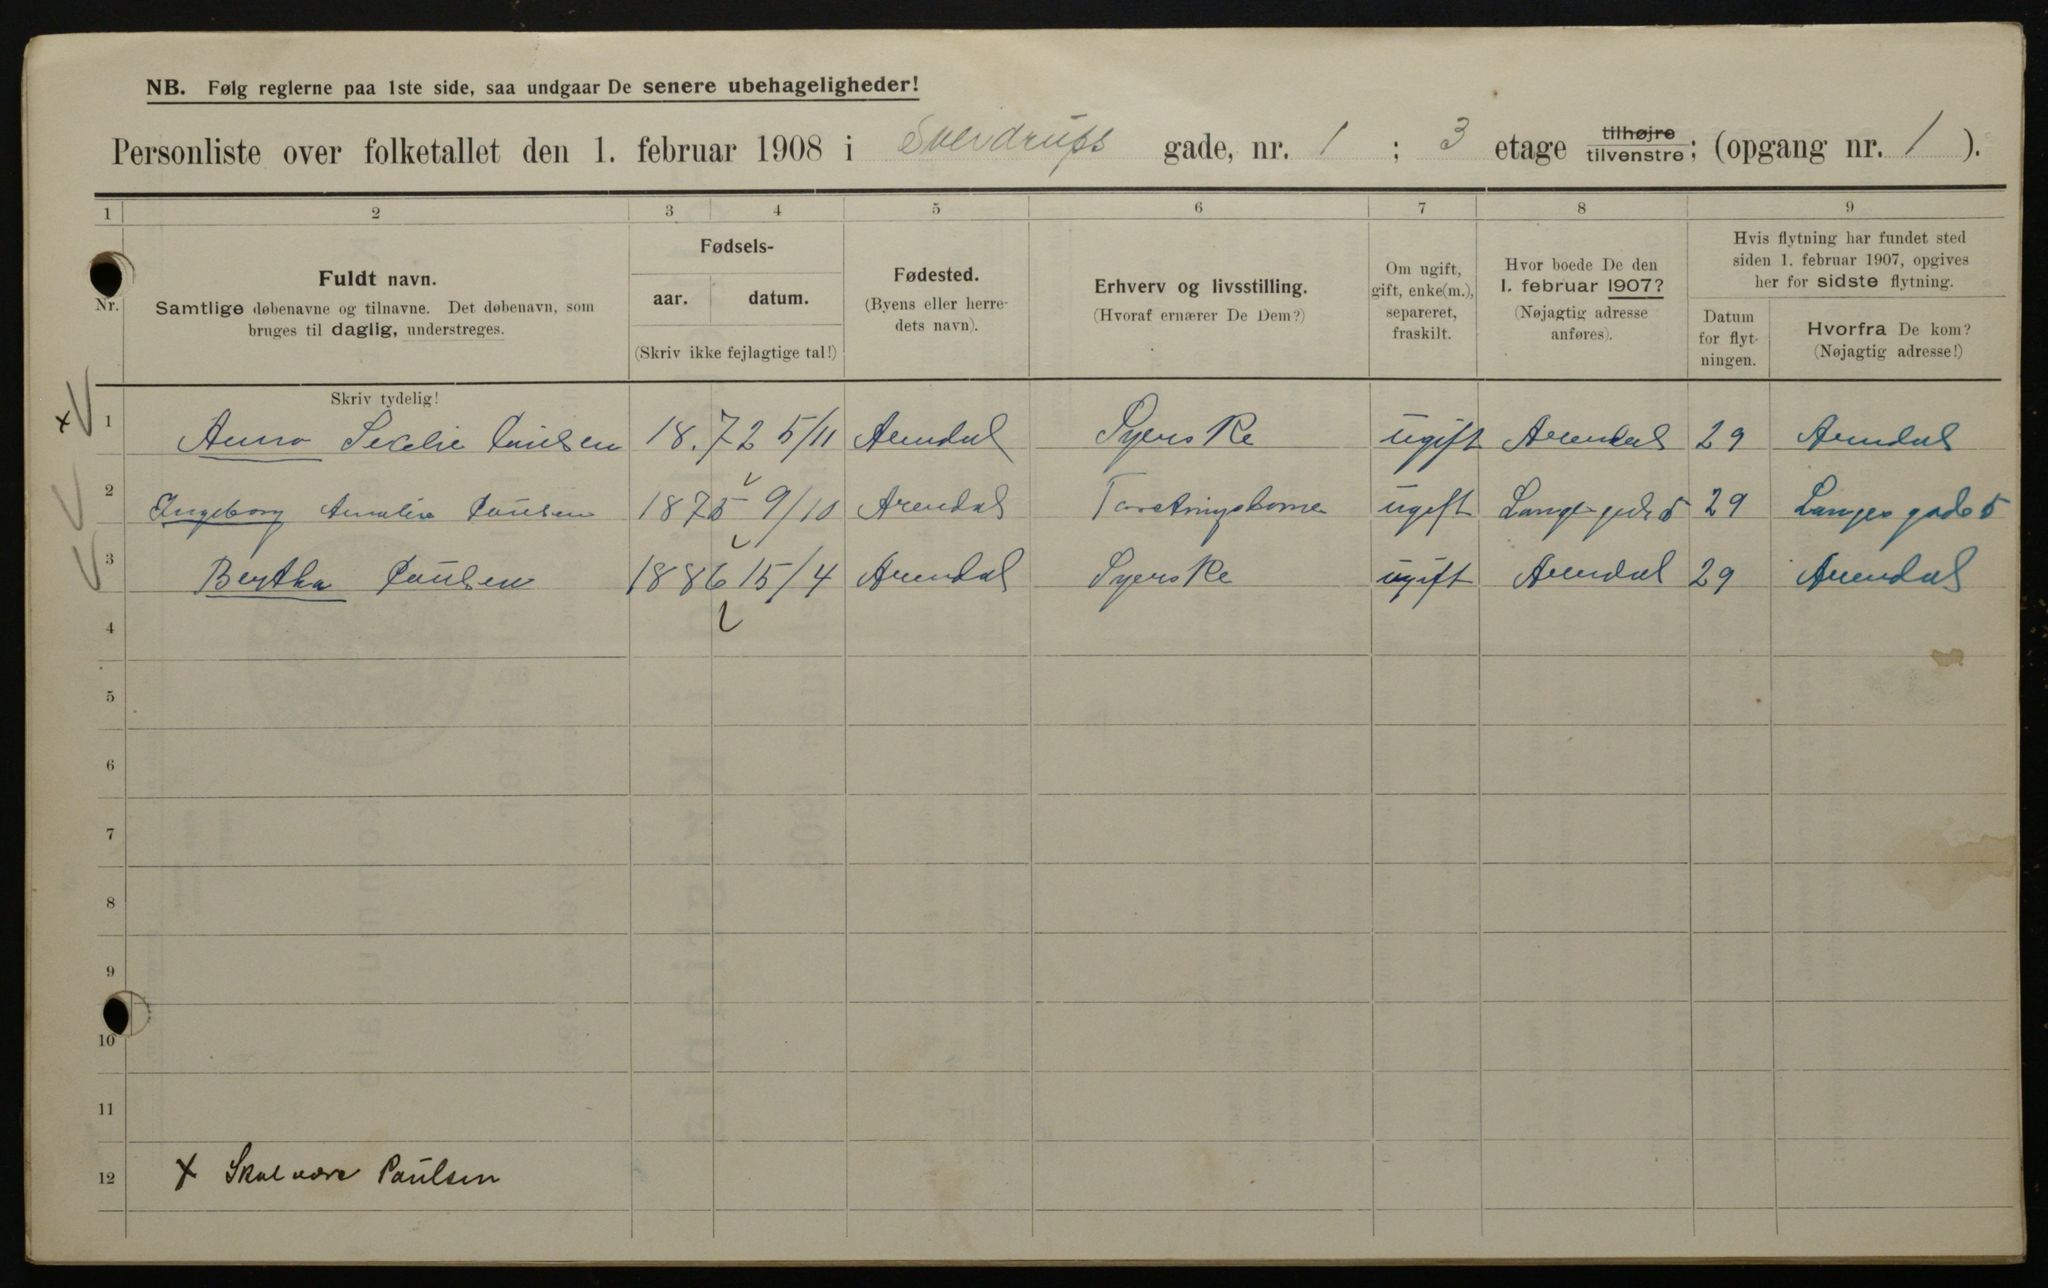 NB. Følg reglerne paa 1ste side, saa undgaar De senere ubehageligheder!
Personliste over folketallet den 1. februar 1908 i Sverdrups gade, nr. 1 ; 3 etage tilhøjre tilvenstre; (opgang nr. 1 ).
1 2 3 4 5 6 7 8 9
Nr.
Fuldt navn.
Samtlige døbenavne og tilnavne. Det døbenavn, som
bruges til daglig, understreges.
Fødsels-
aar. datum.
(Skriv ikke fejlagtige tal!)
Fødested.
(Byens eller herre-
dets navn).
Erhverv og livsstilling.
(Hvoraf ernærer De Dem?)
Om ugift,
gift, enke(m.),
separeret,
fraskilt.
Hvor boede De den
1. februar 1907?
(Nøjagtig adresse
anføres).
Hvis flytning har fundet sted
siden 1. februar 1907, opgives
her for sidste flytning.
Datum
for flyt-
ningen.
Hvorfra De kom?
(Nøjagtig adresse!)
Skriv tydelig!
1 Anna Paulsen 18.72 5/11 Arendal Syerske ugift Arendal 29 Arendal
2 Ingeborg Amalie Paulsen 1875 9/10 Arendal ugift Langes gade 5 29 Langes gade 5
3 Bertha Paulsen 1886 15/4 Arendal Syerske ugift Arendal 29 Arendal
4
5
6
7
8
9
10
11
12 x Skal være Paulsen